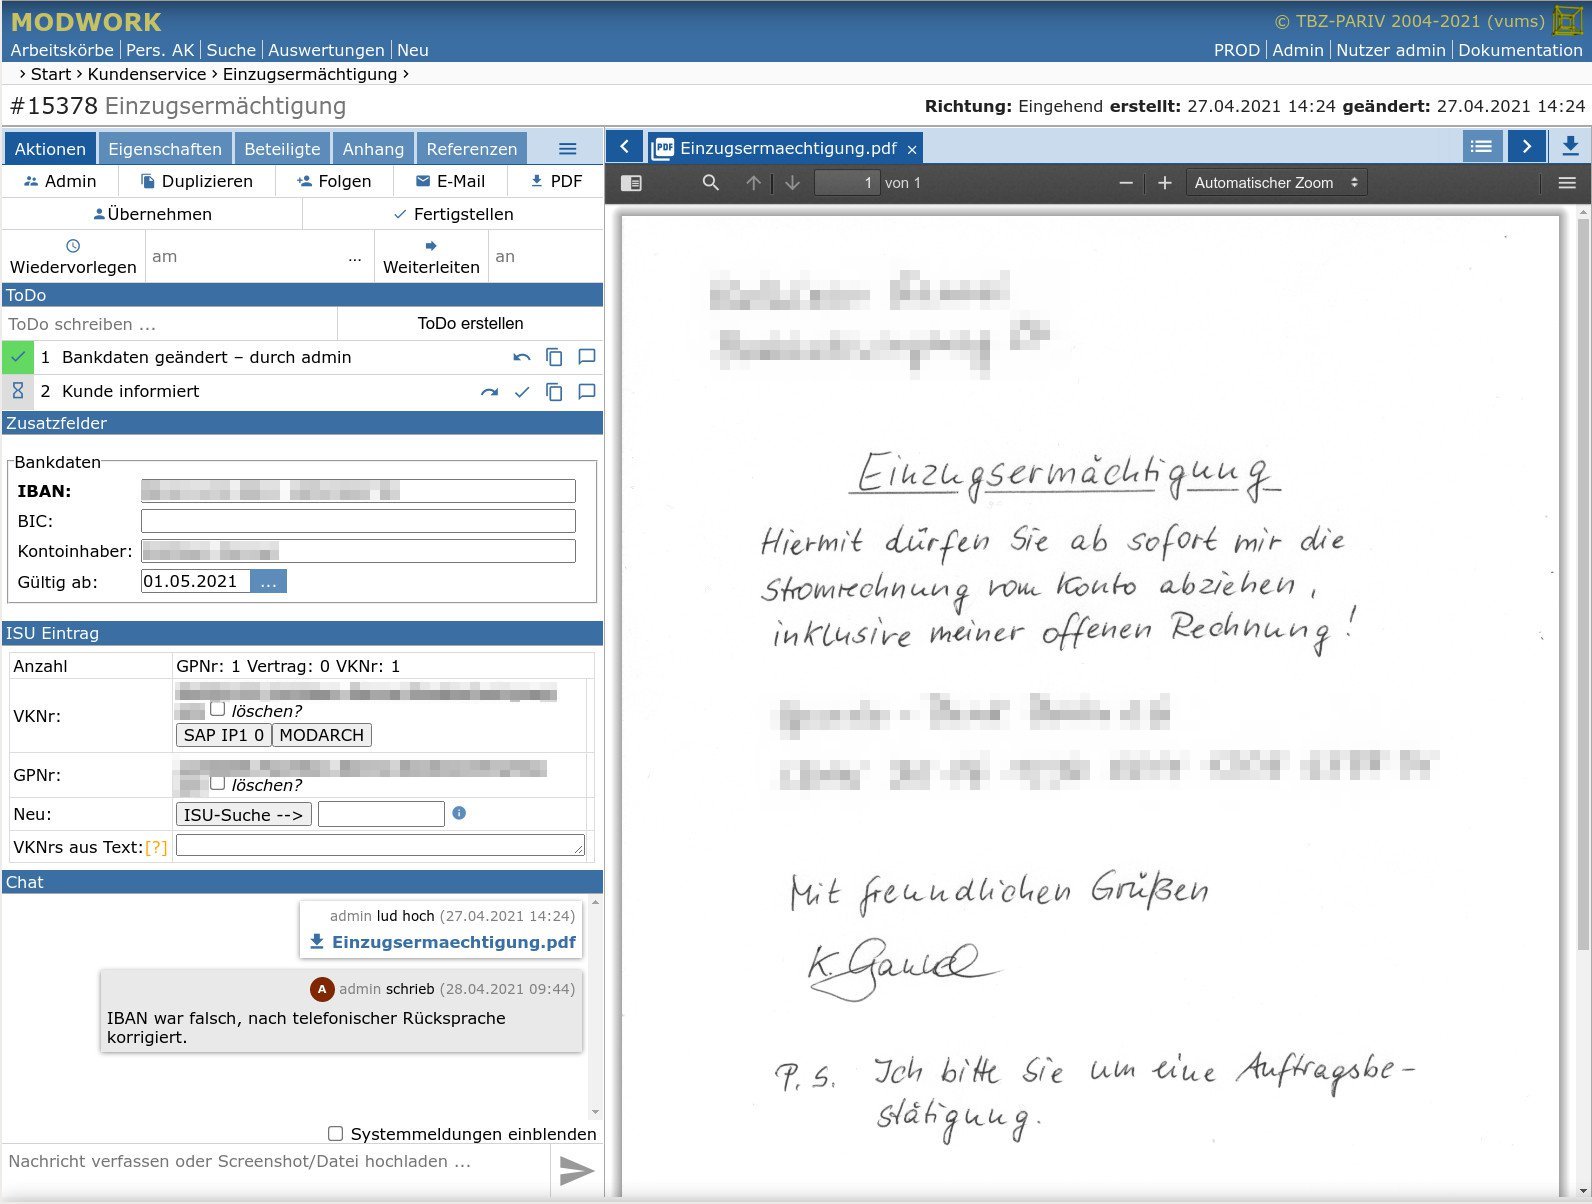 MODWORK
© TBZ-PARIV 2004-2021 (vums)
Arbeitskörbe Pers. AK Suche Auswertungen Neu
PROD Admin Nutzer admin Dokumentation
› Start › Kundenservice › Einzugsermächtigung ›
#15378 Einzugsermächtigung
Richtung: Eingehend erstellt: 27.04.2021 14:24 geändert: 27.04.2021 14:24
Aktionen Eigenschaften Beteiligte Anhang Referenzen
Admin Duplizieren Folgen E-Mail PDF
Übernehmen Fertigstellen
Wiedervorlegen am ... Weiterleiten an
ToDo
ToDo schreiben ... ToDo erstellen
1 Bankdaten geändert – durch admin
2 Kunde informiert
Zusatzfelder
Bankdaten
IBAN:
BIC:
Kontoinhaber:
Gültig ab: 01.05.2021 ...
ISU Eintrag
Anzahl GPNr: 1 Vertrag: 0 VKNr: 1
VKNr: löschen?
SAP IP1 0 MODARCH
GPNr: löschen?
Neu: ISU-Suche -->
VKNrs aus Text:[?]
Chat
admin lud hoch (27.04.2021 14:24)
Einzugsermaechtigung.pdf
A admin schrieb (28.04.2021 09:44)
IBAN war falsch, nach telefonischer Rücksprache
korrigiert.
Systemmeldungen einblenden
Nachricht verfassen oder Screenshot/Datei hochladen ...
PDF Einzugsermaechtigung.pdf ×
1 von 1 Automatischer Zoom
Einzugsermächtigung
Hiermit dürfen Sie ab sofort mir die
Stromrechnung vom Konto abziehen,
inklusive meiner offenen Rechnung!
Mit freundlichen Grüßen
K.
P.S. Ich bitte Sie um eine Auftragsbe-
stätigung.